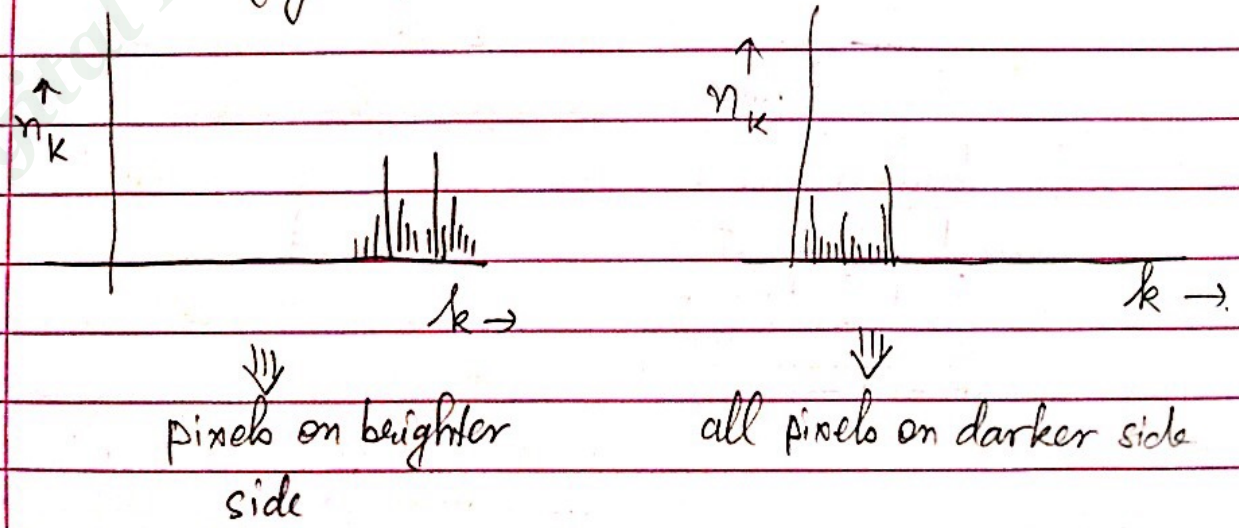 ↑
n_k
k →
pixels on brighter
side
↑
n_k
k →
all pixels on darker side